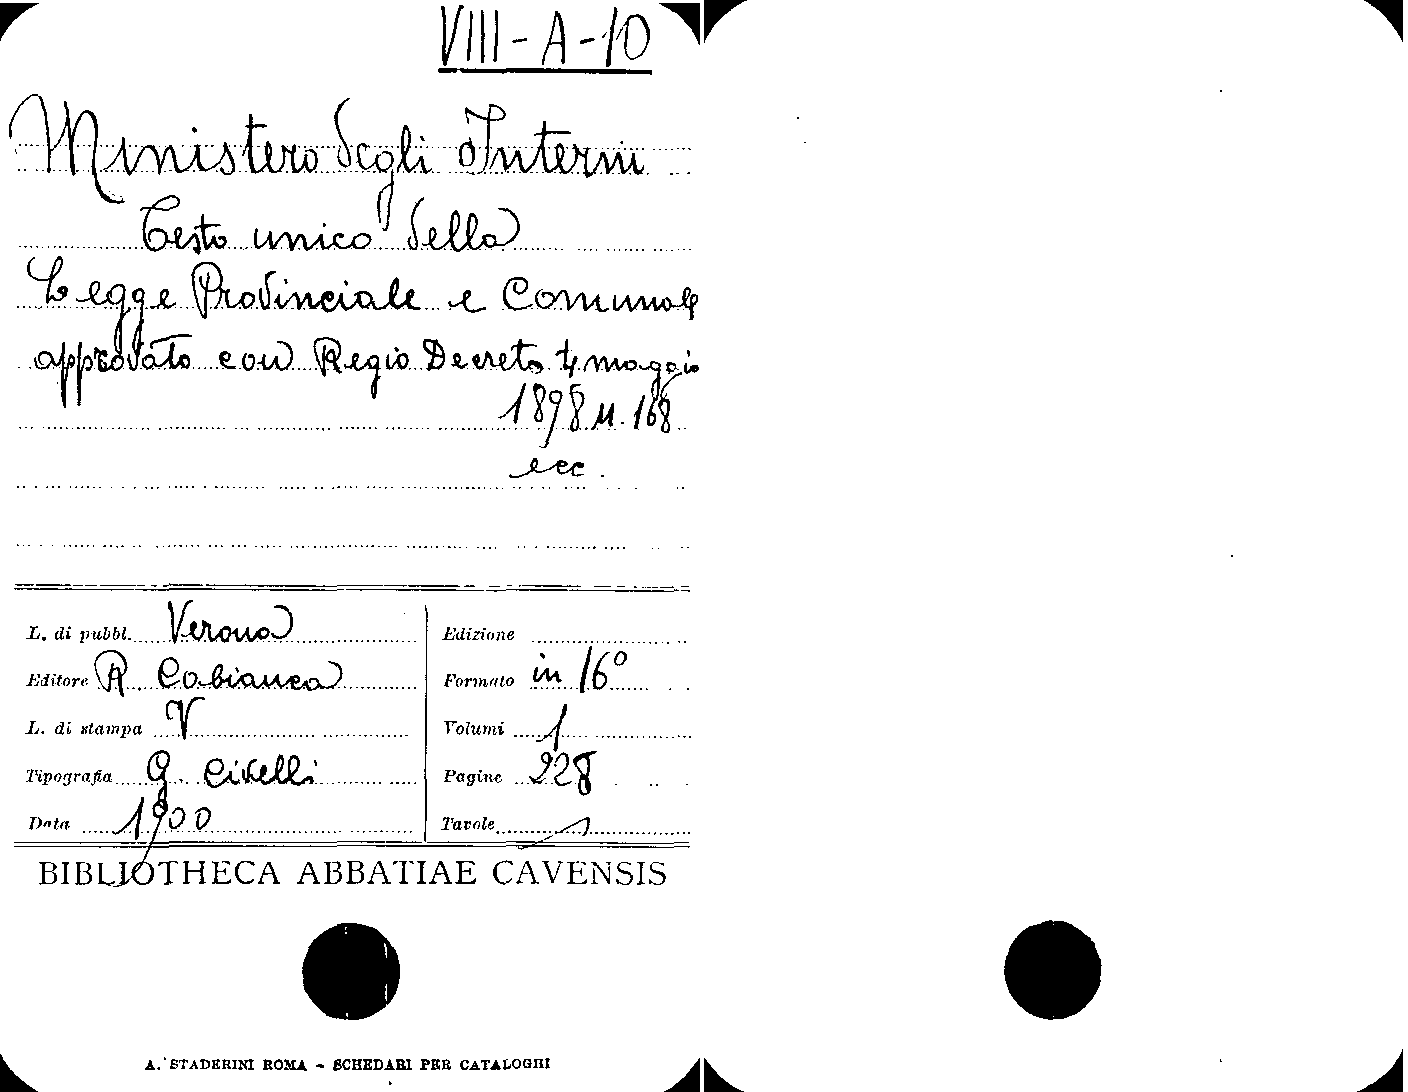 VIII-A-10
Ministero degli Interni
Testo unico della
Legge Provinciale e Comunale
approvato con Regio Decreto 4 maggio
1898 n. 168
ecc.
L. di pubbl. Verona
Editore R. Cabianca
L. di stampa V
Tipografia G. Civelli
Data 1900
Edizione
Formato in 16°
Volumi 1
Pagine 228
Tavole
BIBLIOTHECA ABBATIAE CAVENSIS
A. STADERINI ROMA - SCHEDARI PER CATALOGHI